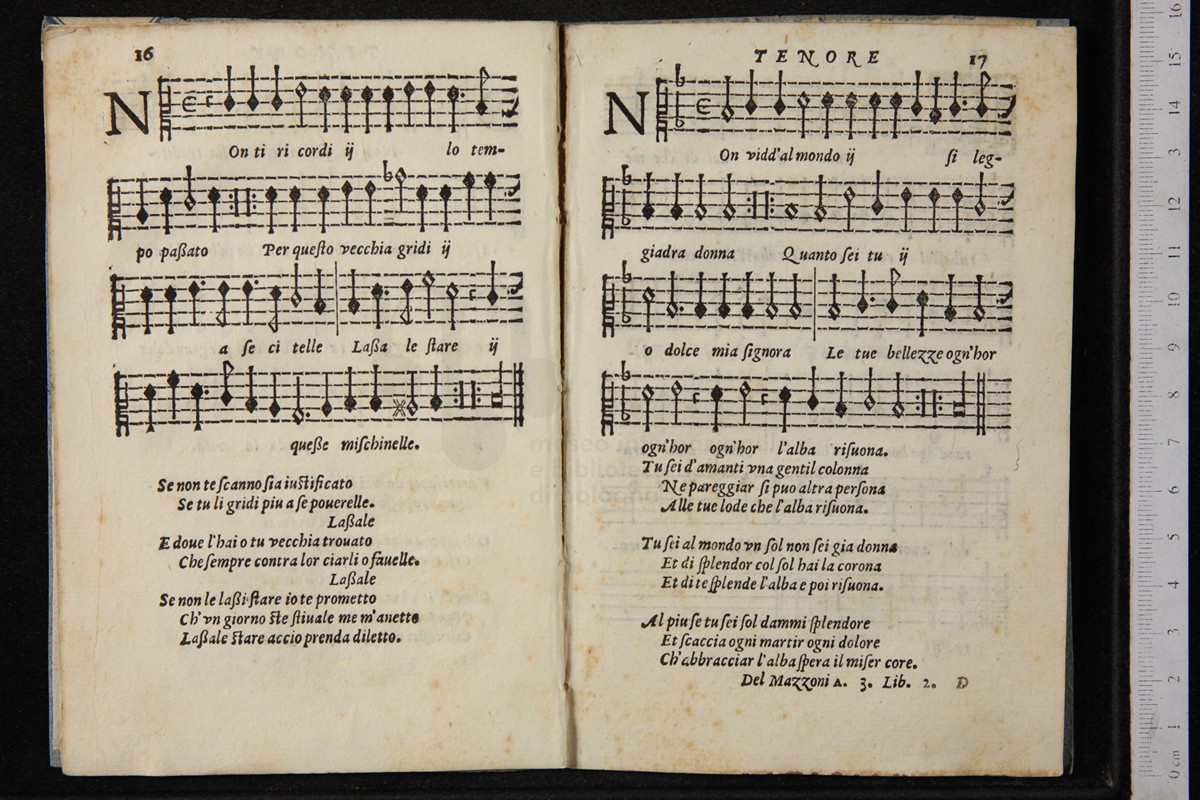 16
N
On ti ri cordi ij lo tem-
po paßato Per queſto vecchia gridi ij
a ſe ci telle Laßa le ſtare ij
queſte miſchinelle.
Se non te ſcanno ſia iuſtificato
Se tu li gridi piu a ſe pouerelle.
Laßale
E doue l'hai o tu vecchia trouato
Che ſempre contra lor ciarli o fauelle.
Laßale
Se non le laßi ſtare io te prometto
Ch'vn giorno ſte ſtiuale me m'anetto
Laßale ſtare accio prenda diletto.
TENORE 17
N
On vidd'al mondo ij ſi leg-
giadra donna Quanto ſei tu ij
o dolce mia ſignora Le tue bellezze ogn'hor
ogn'hor ogn'hor l'alba riſuona.
Tu ſei d'amanti vna gentil colonna
Ne pareggiar ſi puo altra perſona
Alle tue lode che l'alba riſuona.
Tu ſei al mondo vn ſol non ſei gia donna
Et di ſplendor col ſol hai la corona
Et di te ſplende l'alba e poi riſuona.
Al piu ſe tu ſei ſol dammi ſplendore
Et ſcaccia ogni martir ogni dolore
Ch'abbracciar l'alba ſpera il miſer core.
Del Mazzoni A. 3. Lib. 2. D
0 cm 1 2 3 4 5 6 7 8 9 10 11 12 13 14 15 16